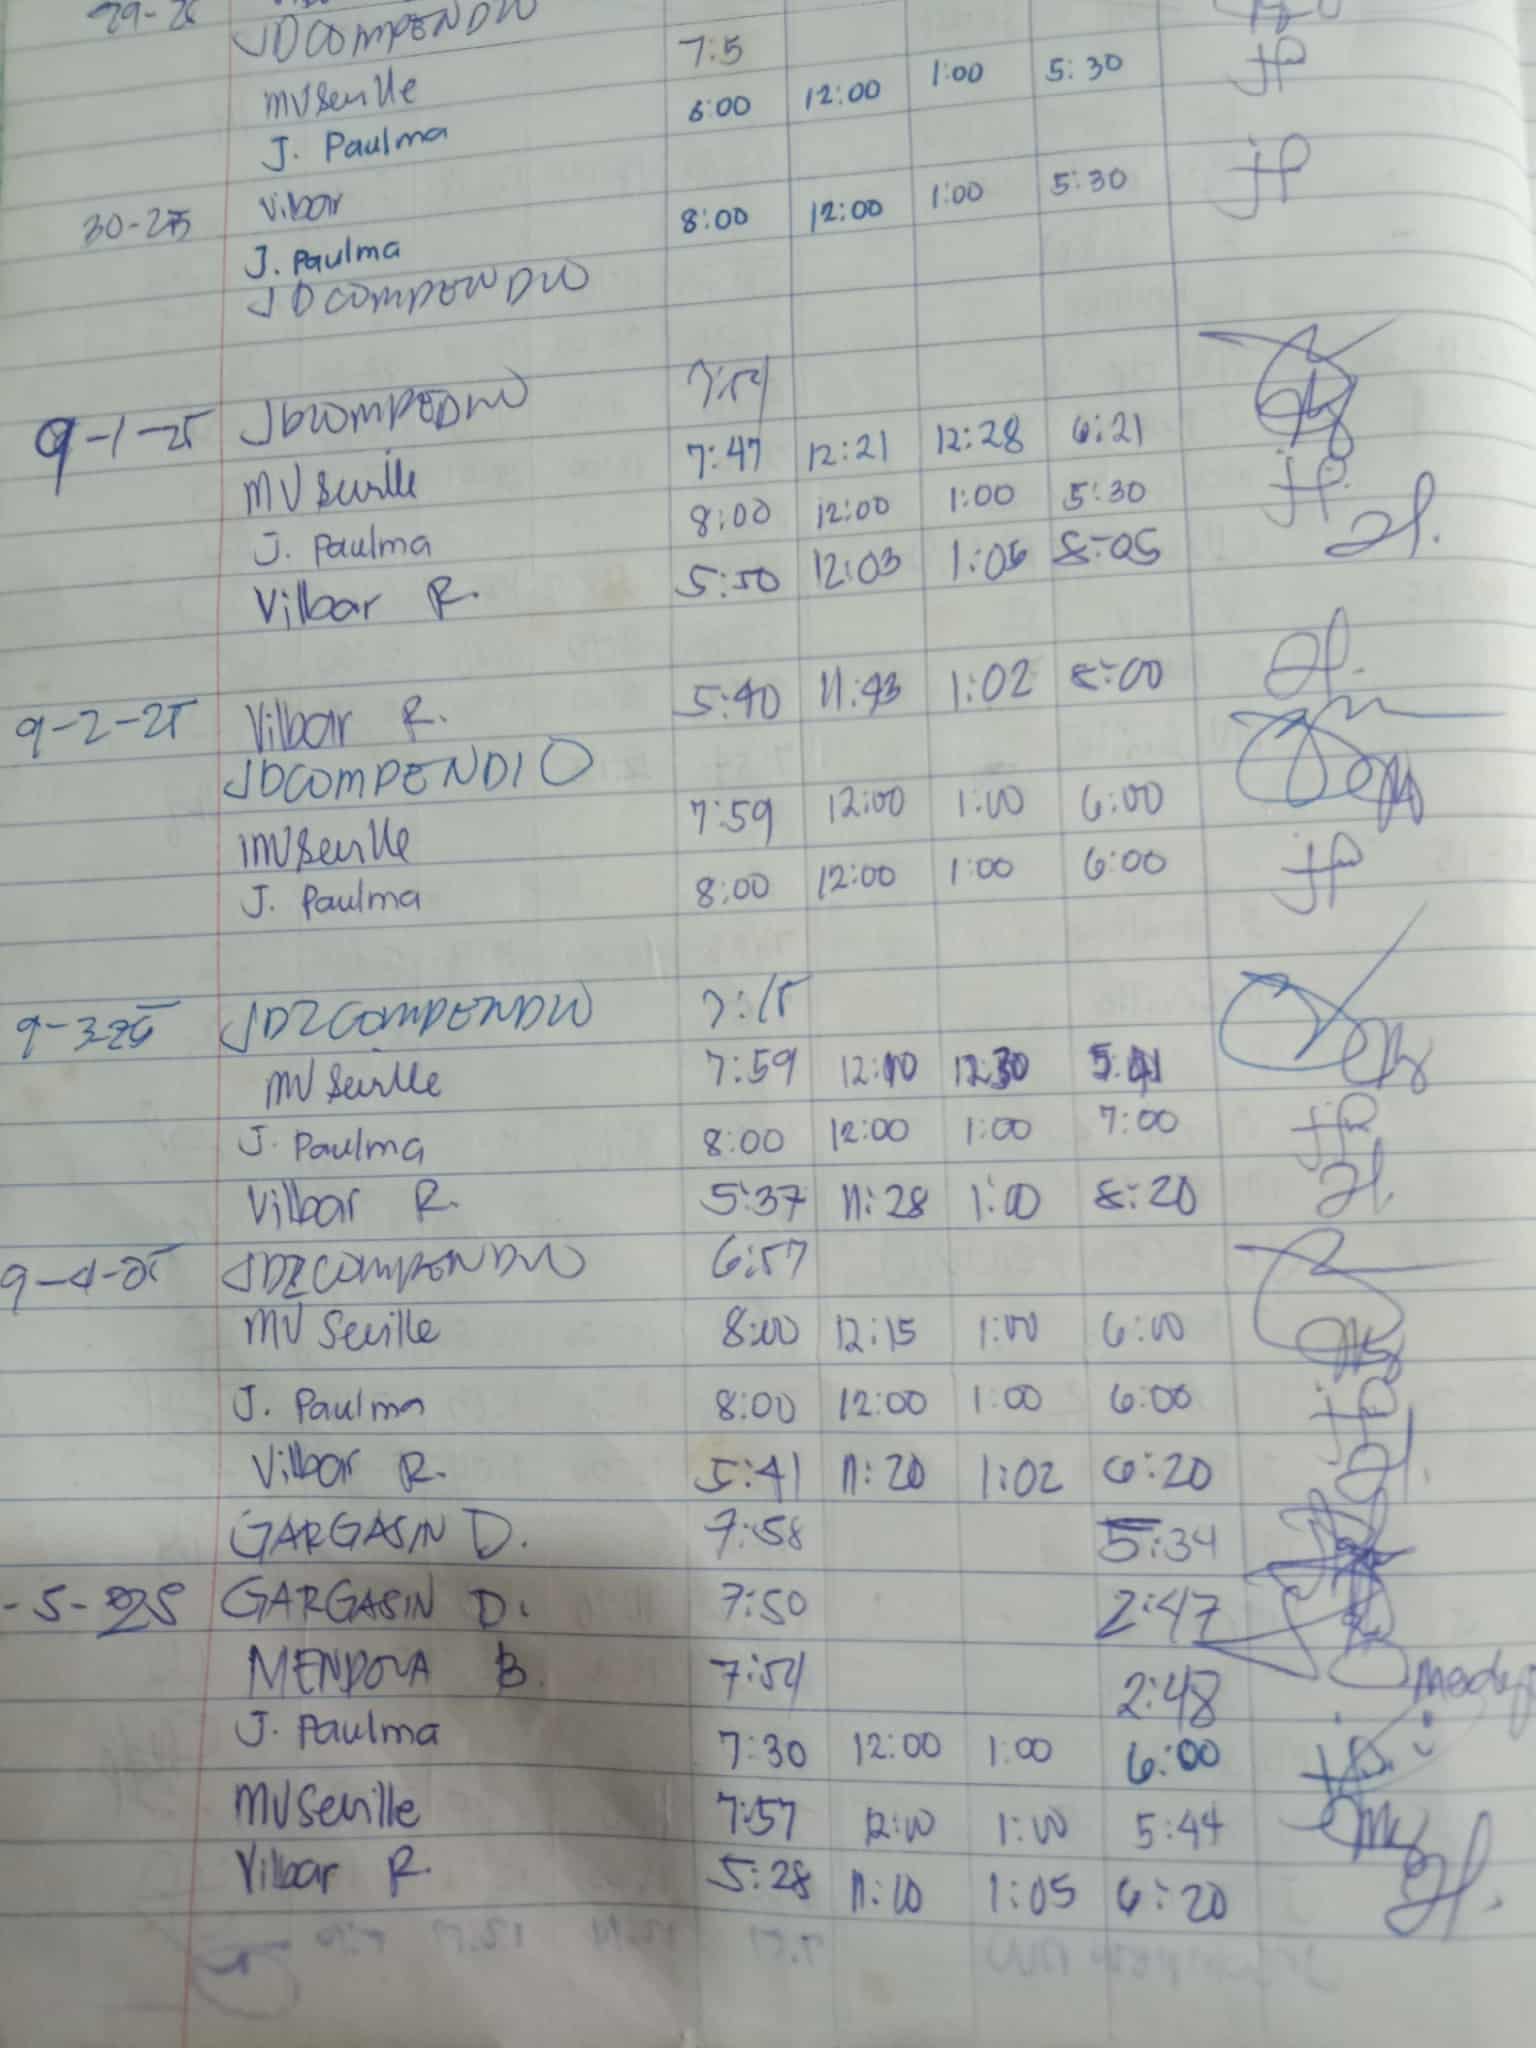 29-25
JDCOMPENDIO 7:5
MVSeville
J. Paulma 8:00 12:00 1:00 5:30 JP
30-25 Vilbar
J. Paulma 8:00 12:00 1:00 5:30 JP
JDCOMPENDIO
9-1-25 JDCOMPEDIO 7:54
MV Seville 7:47 12:21 12:28 6:21
J. Paulma 8:00 12:00 1:00 5:30 JP.
Vilbar R. 5:50 12:03 1:06 8:05
9-2-25 Vilbar R. 5:40 11:43 1:02 8:00
JDCOMPENDIO
MVSeville 7:59 12:00 1:00 6:00
J. Paulma 8:00 12:00 1:00 6:00 JP
9-3-25 JDZCOMPENDIO 7:15
MV Seville 7:59 12:10 12:30 5:41
J. Paulma 8:00 12:00 1:00 7:00 JP
Vilbar R. 5:37 11:28 1:00 8:20
9-4-25 JDZCOMPENDIO 6:57
MV Seville 8:00 12:15 1:00 6:00
J. Paulma 8:00 12:00 1:00 6:00 JP
Vilbar R. 5:41 11:20 1:02 6:20
GARGASIN D. 7:58 5:34
-5-25 GARGASIN D. 7:50 2:47
MENDOZA B. 7:54 2:48
J. Paulma 7:30 12:00 1:00 6:00 JP
MVSeville 7:57 12:10 1:00 5:44
Vilbar R. 5:28 11:10 1:05 6:20